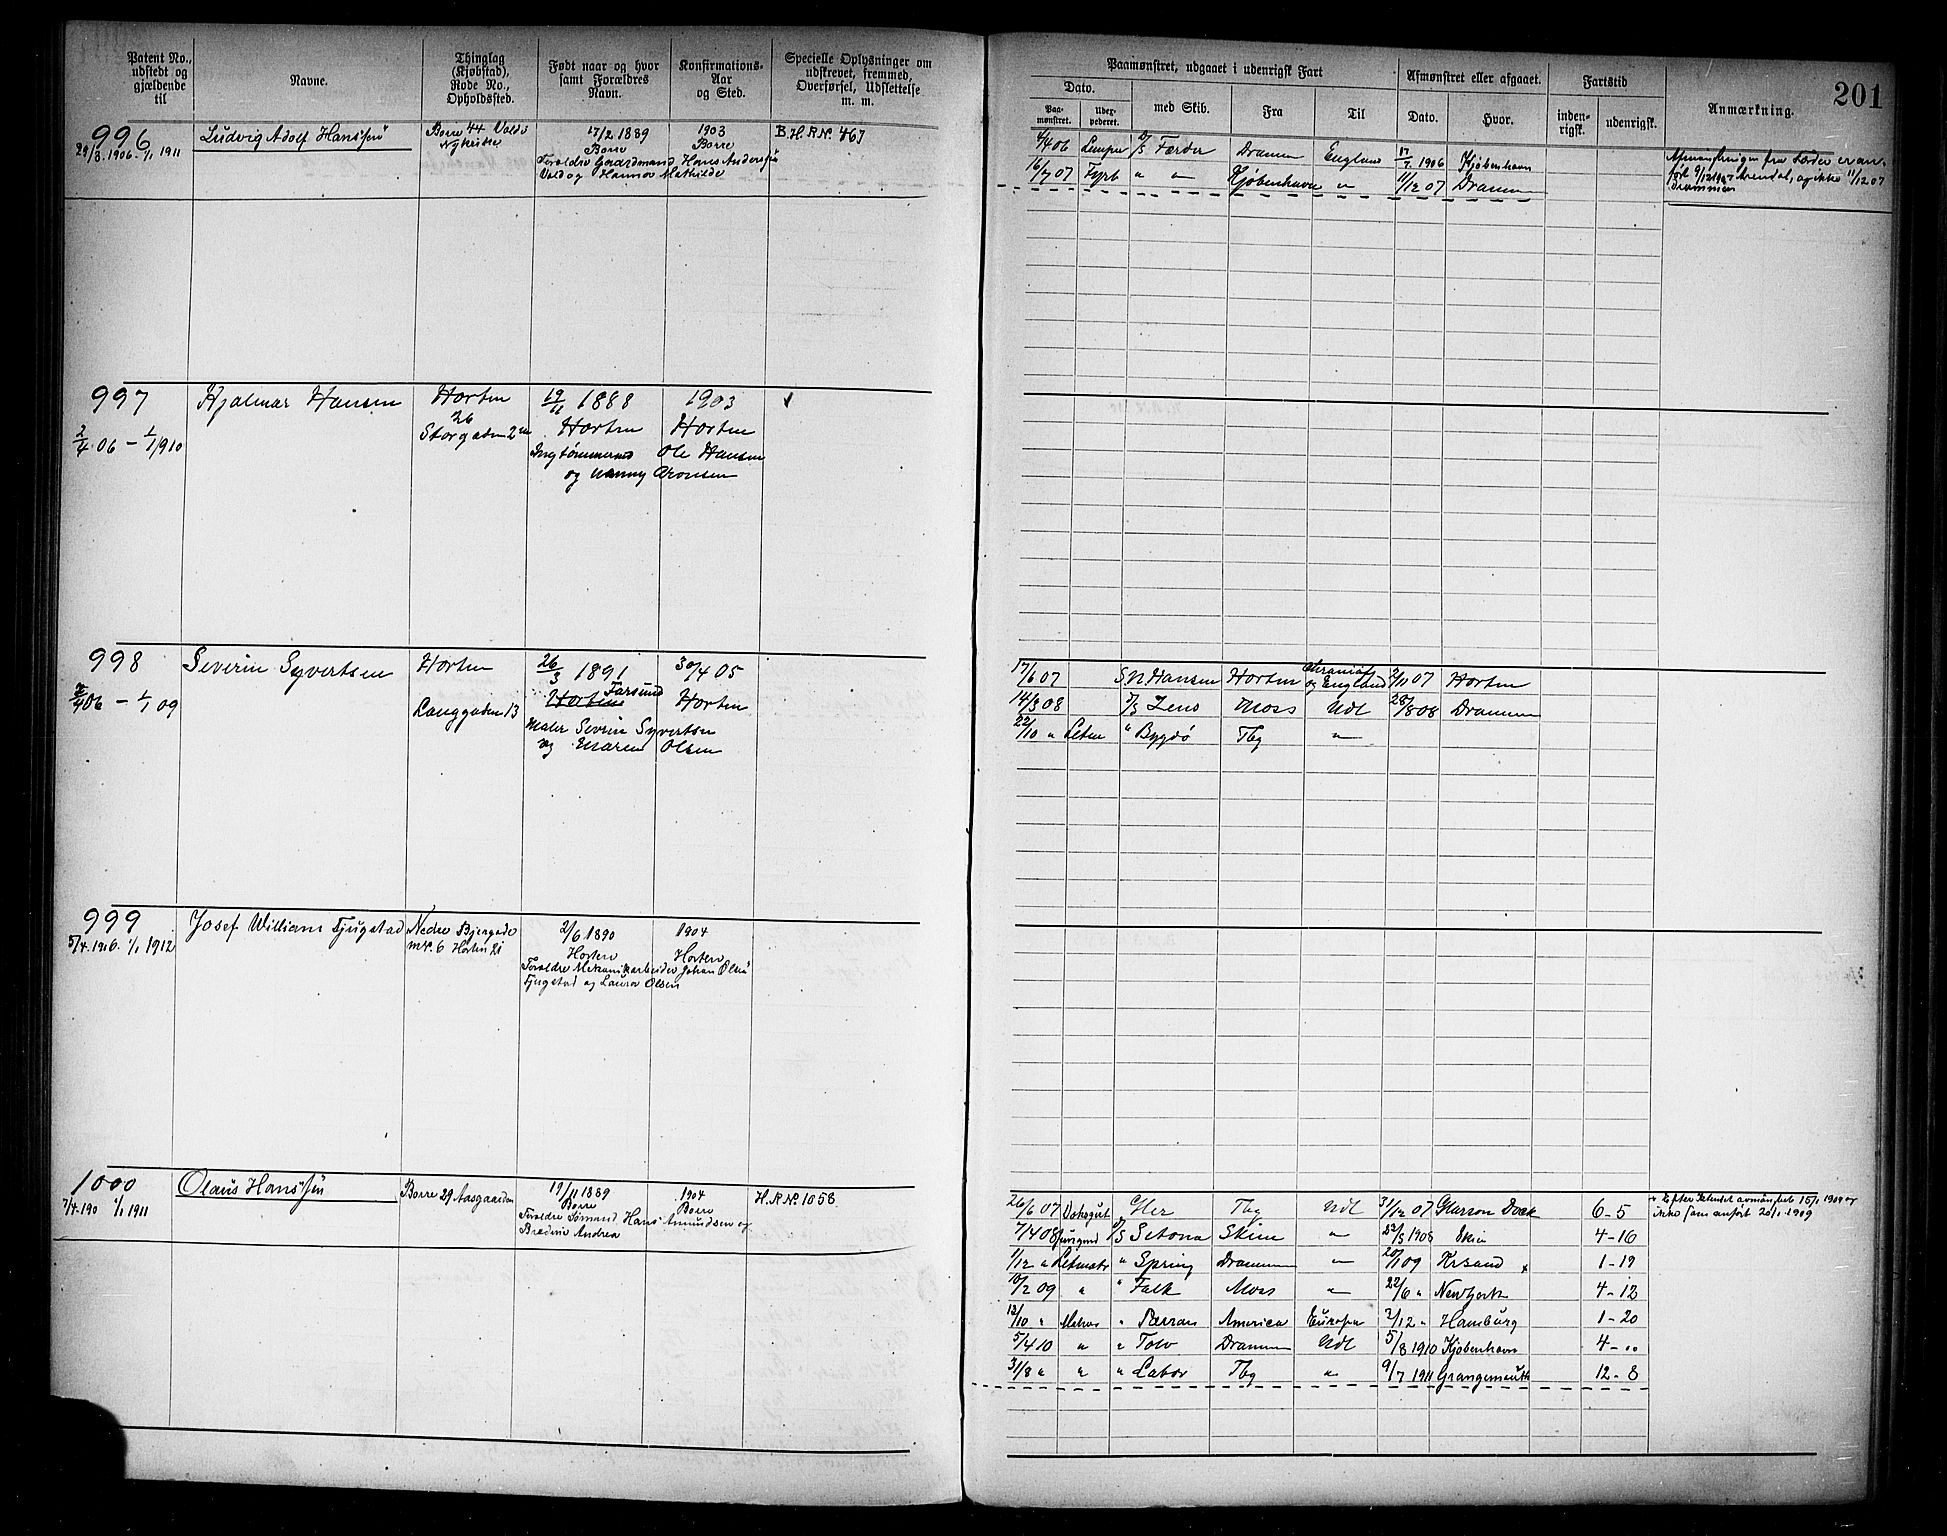 Patent No., udstedt og gjældende til
Navne.
Thinglag (Kjøbstad), Rode No., Opholdssted.
Født naar og hvor samt Forældres Navn.
Konfirmations-Aar og Sted.
Specielle Oplysninger om udskrevet, fremmed, Overførsel, Udslettelse m. m.
Paamønstret, udgaaet i udenrigsk Fart
Dato.
Paa-mønstret.
Uder-pederet.
med Skib.
Fra
Til
Afmønstret eller afgaaet.
Dato.
Hvor.
Fartstid
inden-rigsk.
udenrigsk.
Anmærkning.
201
996
29/3.1906-1/1 1911
Ludvig Adolf Hanssen
Borre 44 Vold
Nykirke
17/2 1889
Borre
Forældre Gaardmand Hans Anderssen
Vold og Hanna Mathilde
1903
Borre
B.H.R.No. 467
4/4 06 Færder Drammen England 17/7 1906 Kjøbenhavn
16/7 07 Fyrb " " Kjøbenhavn " 11/12 07 Drammen
Afmønstringen fra Færder er an-
ført 9/12 1907 Arendal, og ikke 11/12 07
Drammen
997
2/4 06 - 1/1 910
Hjalmar Hansen
Horten
26
Storgaden 2
19/11 1888
Horten
Tømmermd Ole Hansen
og Nanny Aronsen
1903
Horten
998
2/4 06 - 1/1 09
Severin Syvertsen
Horten
Langgaden 13
26/3 1891
Farsund
Horten
Maler Severin Syvertsen
og Maren Olsen
30/4 05
Horten
17/6 07 S.N. Hansen Horten og England 2/11 07 Horten
14/3 08 D/S Zeno Moss Udl 28/8 08 Drammen
22/10 " Letm " Bygdø Tbg "
999
5/4.1906. 1/1 1912
Josef William Tjugstad
Nedre Bjergade
mk. 6 Horten 21
2/6 1890
Horten
Forældre Mekanikarbeider Johan Olsen
Tjugstad og Laura Olsen
1904
Horten
1000
7/4.190 1/1 1911
Olaus Hanssen
Borre 29 Aasgaarden
19/11 1889
Borre
Forældre Sømand Hans Amundsen og
Bredine Andrea
1904
Borre
H.R.No. 1058
26/6 07 Dæksgut Her Tbg Udl 31/12 07 Garson Dock 6-5
7/4 08 Jungmd D/S Setona Skien " 22/8 1908 Skien 4-16
1/12 " Letmatr " Spring Drammen " 20/1 09 Krsand x 1-19
10/2 09 " " Falk Moss " 22/6 " NewYork 4-12
12/10 " Matros " America Europa 2/12 " Hamburg 1-20
5/4 10 " " Drammen Udl 5/8 1910 Kjøbenhavn 4-"
31/8 " " " Labor Tbg " 9/7 1911 Grangemouth 12-8
x Efter afmønstret 15/1 1909 og
ikke som anført 20/1 1909